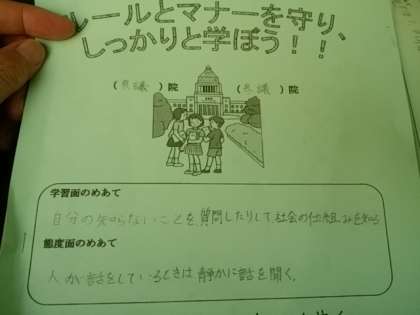 ルールとマナーを守り、
しっかりと学ぼう！！
(衆議)院 (参議)院
学習面のめあて
自分の知らないことを、質問したりして、社会の仕組みを知る
態度面のめあて
人が話をしているときは、静かに話を聞く。